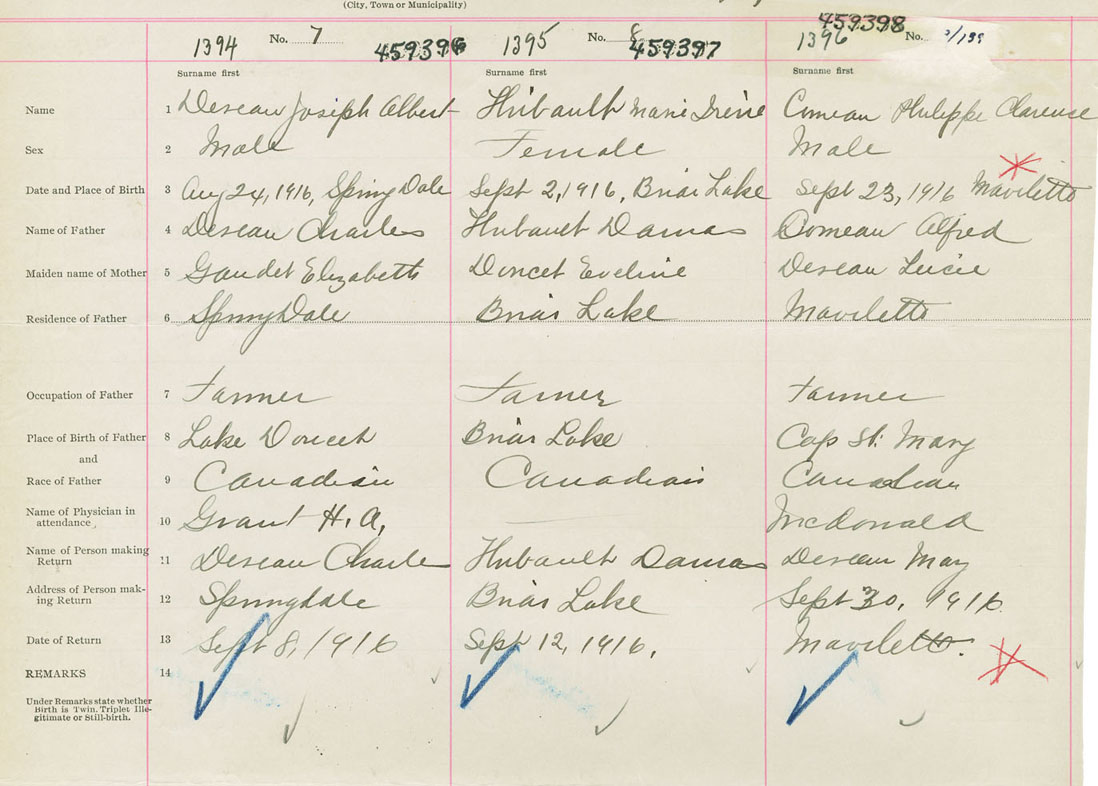 (City, Town or Municipality)
1394 No. 7 459396 1395 No. 8 459397 1396 459398 No.
Surname first Surname first Surname first
Name 1 Deveau Joseph Albert Thibault Marie Irene Comeau Philippe Clarense
Sex 2 Male Female Male
Date and Place of Birth 3 Aug 24, 1916, SpringDale Sept 2, 1916, Briar Lake Sept 23, 1916 Mavilette
Name of Father 4 Deveau Charles Thibault Damas Comeau Alfred
Maiden name of Mother 5 Gaudet Elizabeth Doucet Eveline Deveau Lucie
Residence of Father 6 SpringDale Briar Lake Mavilette
Occupation of Father 7 Farmer Farmer Farmer
Place of Birth of Father 8 Lake Doucet Briar Lake Cap St. Mary
and
Race of Father 9 Canadian Canadian Canadian
Name of Physician in
attendance 10 Grant H. A. McDonald
Name of Person making
Return 11 Deveau Charles Thibault Damas Deveau May
Address of Person mak-
ing Return 12 Springdale Briar Lake Sept 30, 1916.
Date of Return 13 Sept 8, 1916 Sept 12, 1916. Mavilette.
REMARKS 14
Under Remarks state whether
Birth is Twin, Triplet Ille-
gitimate or Still-birth.